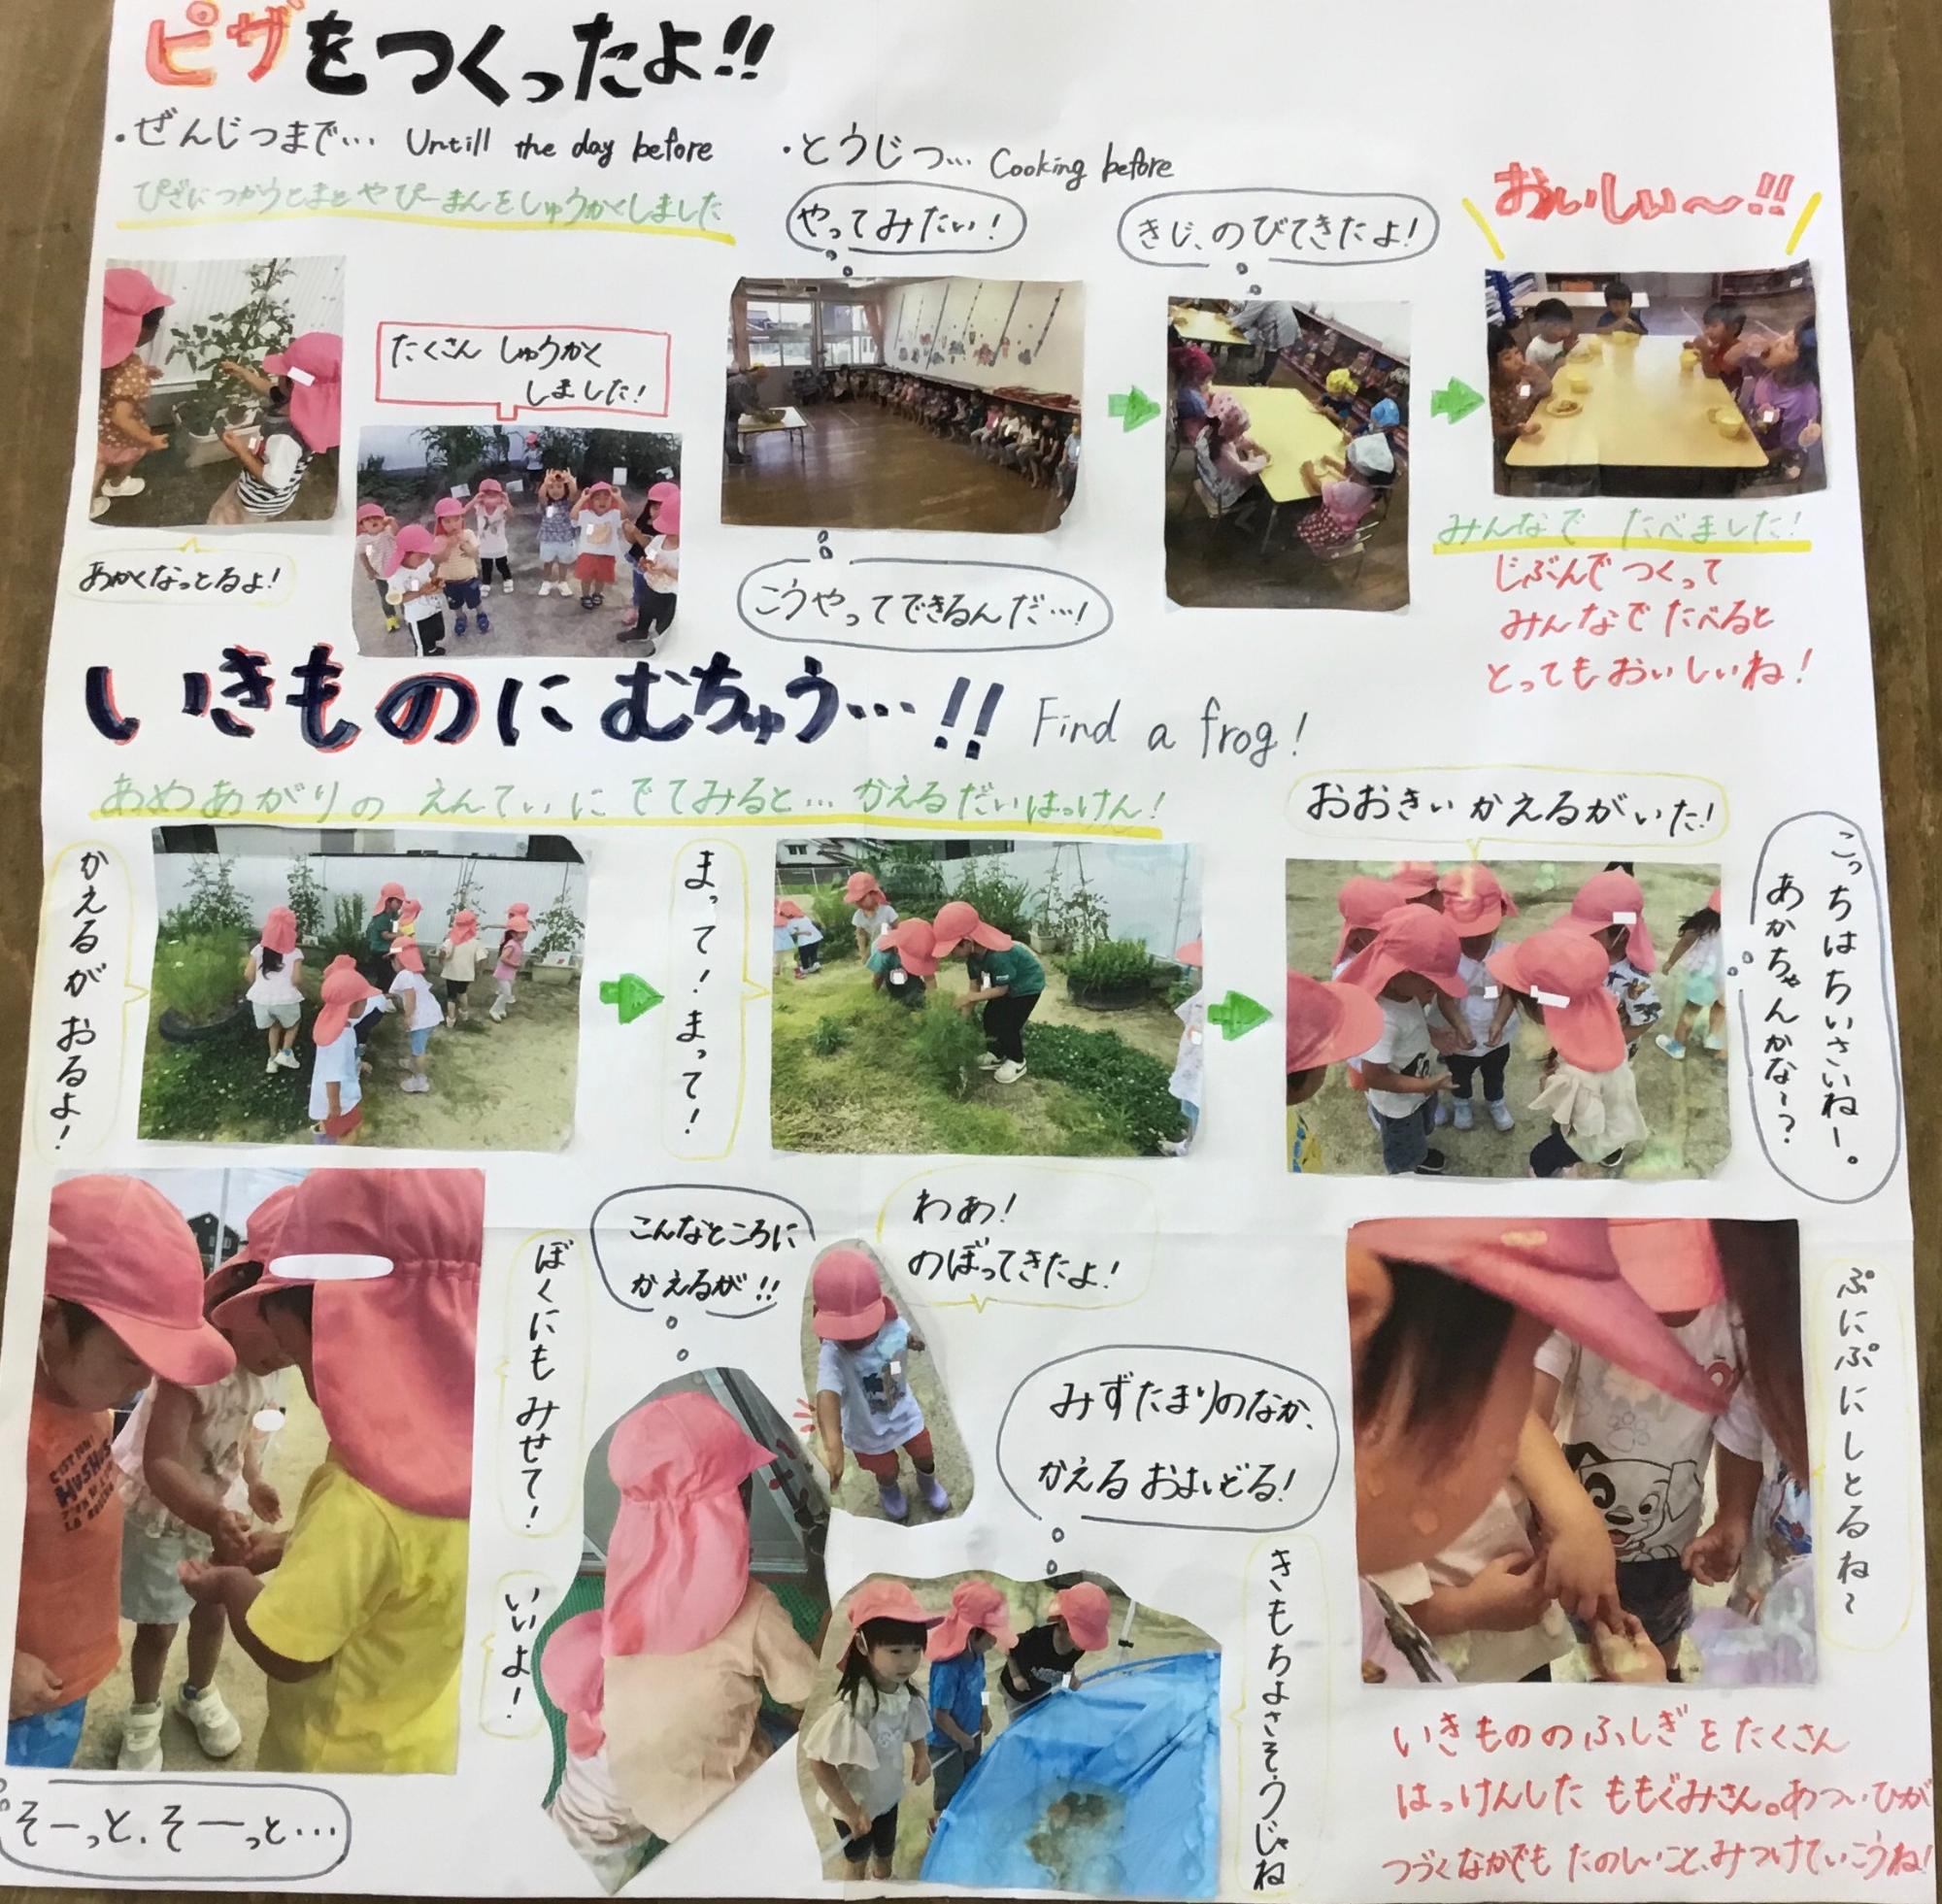 ピザをつくったよ!!
・ぜんじつまで… Untill the day before
ぴざにつかうとまとやぴーまんをしゅうかくしました
・とうじつ… Cooking before
やってみたい!
きじ、のびてきたよ!
おいしい〜!!
たくさん しゅうかく
しました!
あかくなっとるよ!
こうやってできるんだ…!
みんなで たべました!
じぶんで つくって
みんなで たべると
とってもおいしいね!
いきものに むちゅう…!! Find a frog!
あめあがりの えんてぃに でてみると… かえるだいはっけん!
かえるが おるよ!
まって!まって!
おおきい かえるがいた!
こっちは ちいさいねー。
あかちゃんかな〜?
ぼくにも みせて!
いいよ!
こんなところに
かえるが!!
わあ!
のぼってきたよ!
みずたまりのなか、
かえる およいどる!
きもちよさそうじゃね
ぷにぷにしとるね〜
そーっと、そーっと…
いきもののふしぎを たくさん
はっけんした ももぐみさん。あついひが
つづくなかでも たのしいこと、みつけていこうね!